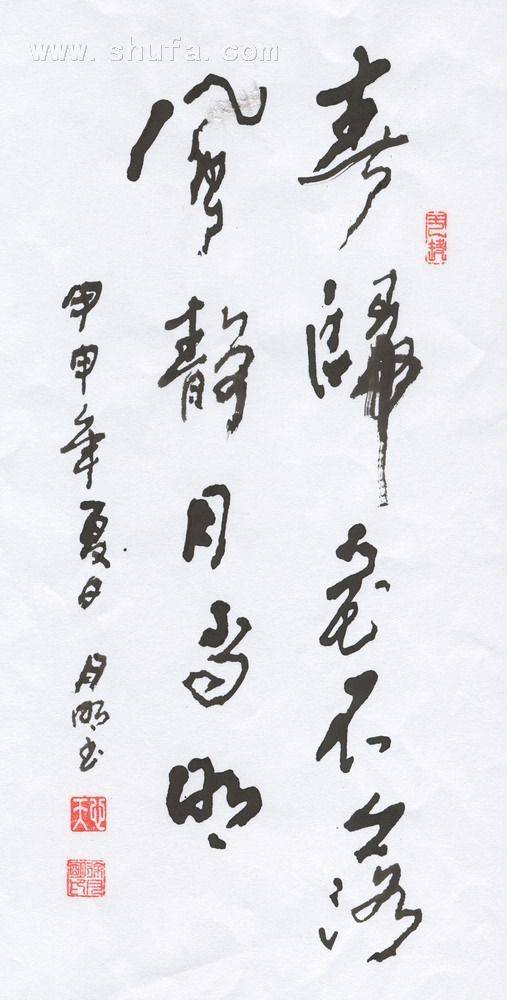 www.shufa.com
春歸花不落
風靜月尚明
甲申年夏日 月明书